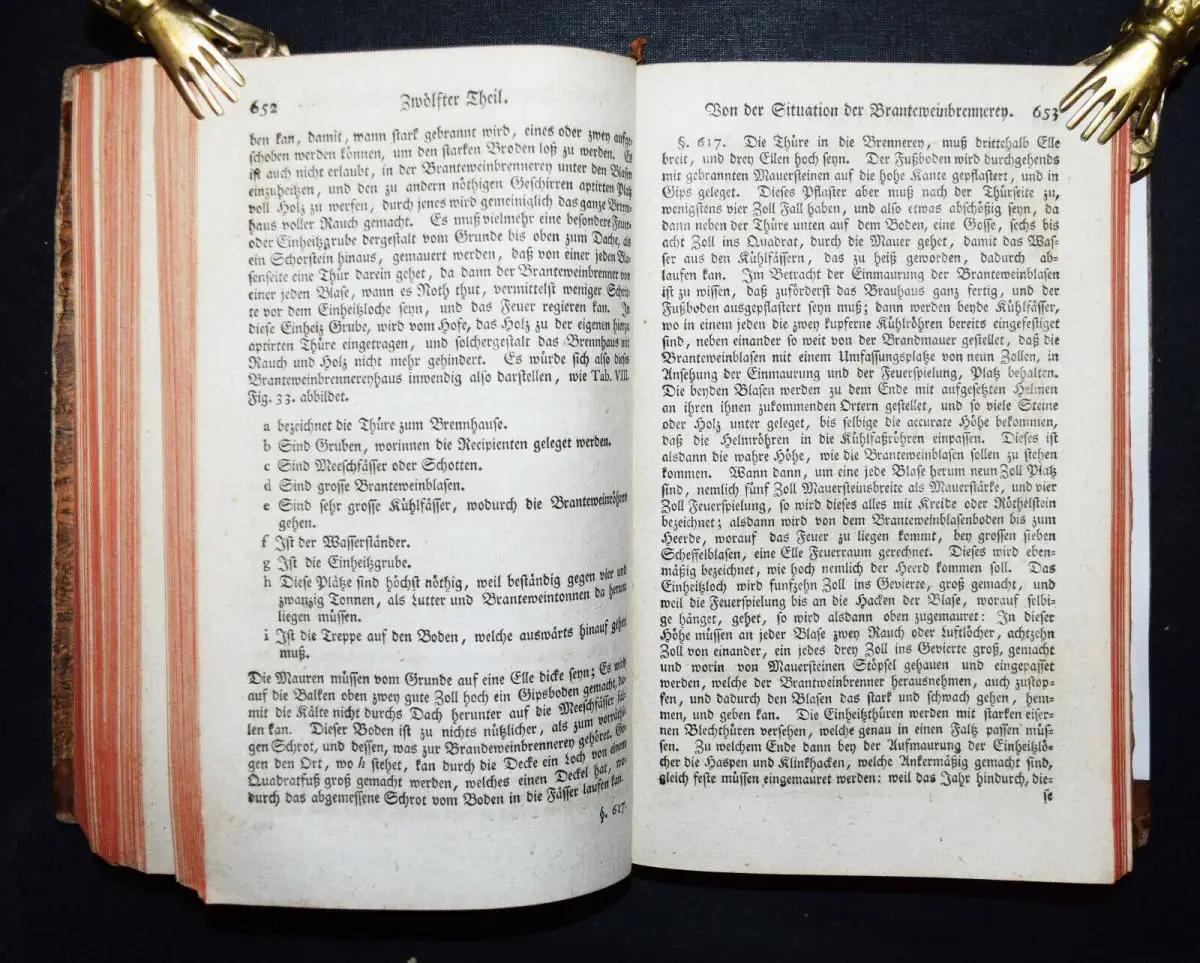 652 Zwölfter Theil.
ben kan, damit, wann stark gebrannt wird, eines oder zwey aufge-
schoben werden können, um den starken Broden loß zu werden. Es
ist auch nicht erlaubt, in der Branteweinbrennerey unter den Blasen
einzuheitzen, und den zu andern nöthigen Geschirren aptirten Platz
voll Holz zu werfen, durch jenes wird gemeiniglich das ganze Brenn-
haus voller Rauch gemacht. Es muß vielmehr eine besondere Feuer-
oder Einheitzgrube dergestalt vom Grunde bis oben zum Dache, als
ein Schorstein hinaus, gemauert werden, daß von einer jeden Bla-
senseite eine Thür darein gehet, da dann der Branteweinbrenner von
einer jeden Blase, wann es Noth thut, vermittelst weniger Schrit-
te vor dem Einheitzloche seyn, und das Feuer regieren kan. In
diese Einheitz Grube, wird vom Hofe, das Holz zu der eigenen hierzu
aptirten Thüre eingetragen, und solchergestalt das Brennhaus mit
Rauch und Holz nicht mehr gehindert. Es würde sich also dieses
Branteweinbrennereyhaus inwendig also darstellen, wie Tab. VIII.
Fig. 33. abbildet.
a bezeichnet die Thüre zum Brennhause.
b Sind Gruben, worinnen die Recipienten geleget werden.
c Sind Meeschfässer oder Schotten.
d Sind grosse Branteweinblasen.
e Sind sehr grosse Kühlfässer, wodurch die Branteweinröhren
gehen.
f Ist der Wasserständer.
g Ist die Einheitzgrube.
h Diese Plätze sind höchst nöthig, weil beständig gegen vier und
zwanzig Tonnen, als Lutter und Branteweintonnen da herum
liegen müssen.
i Ist die Treppe auf den Boden, welche auswärts hinauf gehen
muß.
Die Mauren müssen vom Grunde auf eine Elle dicke seyn; Es wird
auf die Balken oben zwey gute Zoll hoch ein Gipsboden gemacht, da-
mit die Kälte nicht durchs Dach herunter auf die Meeschfässer fal-
len kan. Dieser Boden ist zu nichts nützlicher, als zum vorräthi-
gen Schrot, und dessen, was zur Brandeweinbrennerey gehöret. Ge-
gen den Ort, wo h stehet, kan durch die Decke ein Loch von einem
Quadratfuß groß gemacht werden, welches einen Deckel hat, wo-
durch das abgemessene Schrot vom Boden in die Fässer laufen kan.
§. 617.
Von der Situation der Branteweinbrennerey. 653
§. 617. Die Thüre in die Brennerey, muß drittehalb Elle
breit, und drey Ellen hoch seyn. Der Fußboden wird durchgehends
mit gebrannten Mauersteinen auf die hohe Kante gepflastert, und in
Gips geleget. Dieses Pflaster aber muß nach der Thürseite zu,
wenigstens vier Zoll Fall haben, und also etwas abschößig seyn, da
dann neben der Thüre unten auf dem Boden, eine Gosse, sechs bis
acht Zoll ins Quadrat, durch die Mauer gehet, damit das Was-
ser aus den Kühlfässern, das zu heiß geworden, dadurch ab-
laufen kan. Im Betracht der Einmaurung der Branteweinblasen
ist zu wissen, daß zuförderst das Brauhaus ganz fertig, und der
Fußboden ausgepflastert seyn muß; dann werden beyde Kühlfässer,
wo in einem jeden die zwey kupferne Kühlröhren bereits eingefestiget
sind, neben einander so weit von der Brandmauer gestellet, daß die
Branteweinblasen mit einem Umfassungsplatze von neun Zollen, in
Ansehung der Einmaurung und der Feuerspielung, Platz behalten.
Die beyden Blasen werden zu dem Ende mit aufgesetzten Helmen
an ihren ihnen zukommenden Ortern gestellet, und so viele Steine
oder Holz unter geleget, bis selbige die accurate Höhe bekommen,
daß die Helmröhren in die Kühlfaßröhren einpassen. Dieses ist
alsdann die wahre Höhe, wie die Branteweinblasen sollen zu stehen
kommen. Wann dann, um eine jede Blase herum neun Zoll Platz
sind, nemlich fünf Zoll Mauersteinsbreite als Mauerstärke, und vier
Zoll Feuerspielung, so wird dieses alles mit Kreide oder Röthelstein
bezeichnet; alsdann wird von dem Branteweinblasenboden bis zum
Heerde, worauf das Feuer zu liegen kommt, bey grossen sieben
Scheffelblasen, eine Elle Feuerraum gerechnet. Dieses wird eben-
mäßig bezeichnet, wie hoch nemlich der Heerd kommen soll. Das
Einheitzloch wird funfzehn Zoll ins Gevierte, groß gemacht, und
weil die Feuerspielung bis an die Hacken der Blase, worauf selbi-
ge hänget, gehet, so wird alsdann oben zugemauret: In dieser
Höhe müssen an jeder Blase zwey Rauch oder Luftlöcher, achtzehn
Zoll von einander, ein jedes drey Zoll ins Gevierte groß, gemacht
und worin von Mauersteinen Stöpsel gehauen und eingepasset
werden, welche der Brantweinbrenner herausnehmen, auch zustop-
fen, und dadurch den Blasen das stark und schwach gehen, hem-
men, und geben kan. Die Einheitzthüren werden mit starken eiser-
nen Blechthüren versehen, welche genau in einen Faltz passen müs-
sen. Zu welchem Ende dann bey der Aufmaurung der Einheitzlö-
cher die Haspen und Klinkhacken, welche Ankermäßig gemacht sind,
gleich feste müssen eingemauret werden: weil das Jahr hindurch, die-
se